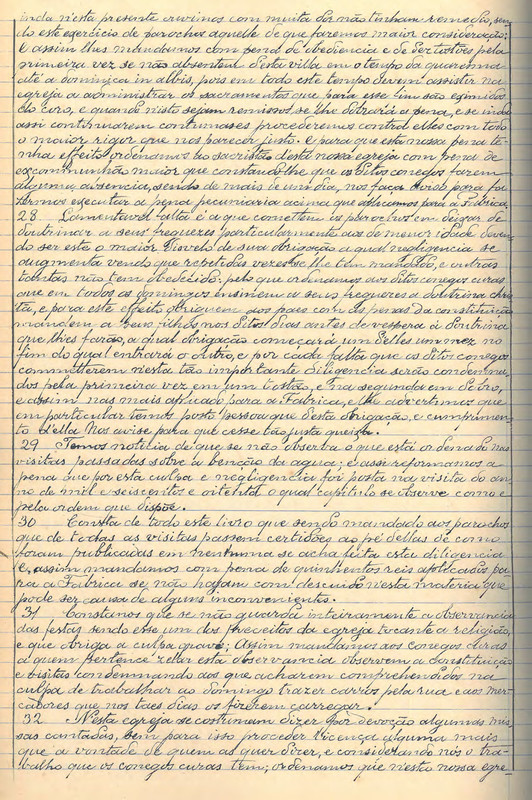 inda n'esta presente ouvimos com muita dor não tinham remedio, sen-
do este exercicio de parochos aquelle de que fazemos maior consideração;
E assim lhes mandamos com pena de obediencia e de dez tostões pela
primeira vez se não absentem desta villa em o tempo da quaresma
até a dominica in albis, pois em todo este tempo devem assistir na
egreja a administrar os sacramentos que para esse fim são eximidos
do coro, e quando nisto sejam remissos se lhe dobrará a pena, e se inda
assi continuarem contumases procederemos contra elles com todo
o maior rigor que nos parecer justo. E para que esta nossa pena te-
nha effeito ordenamos ao sacristão desta nossa egreja com pena de
excommunhão maior que constando-lhe que os ditos conegos fazem
alguma ausencia, sendo de mais de um dia, nos faça aviso para fa-
zermos executar a pena pecuniaria acima que applicamos para a Fabrica.
28 Lamentavel falta é a que comettem os parochos em deixar de
doutrinar a seus freguezes particularmente aos de menor idade deven-
do ser este o maior disvelo de sua obrigação a qual negligencia se
augmenta vendo que repetidas vezes se lhe tem mandado, e outras
tantas não tem obedecido: pelo que ordenamos aos ditos conegos curas
que em todos os domingos ensinem a seus freguezes a doutrina chris-
tã, e para este effeito obriguem aos paes com as penas da constituição
mandem a seus filhos nos ditos dias antes de vespera á doutrina
que lhes farão, a qual obrigação começará um delles um mez no
fim do qual entrará o outro, e por cada falta que os ditos conegos
commetterem n'esta tão importante diligencia serão condemna-
dos pela primeira vez em um tostão, e na segunda em dobro,
e assim nas mais aplicado para a Fabrica, e lhe advertimos que
em particular temos posto pessoa que desta obrigação, e cumprimen-
to d'ella nos avise para que cesse tão justa queixa.
29 Temos noticia de que se não observa o que está ordenado nas
visitas passadas sobre a benção da agua; e assi reformamos a
pena que por esta culpa e negligencia foi posta na visita do an-
no de mil e seiscentos e oitenta o qual capitulo se observe como e
pela ordem que dispõe.
30 Consta de todo este livro que sendo mandado aos parochos
que de todas as visitas passem certidões ao pé dellas de como
foram publicadas em nenhuma se acha feita esta diligencia
e, assim mandamos com pena de quinhentos reis aplicados pa-
ra a Fabrica se não hajam com descuido n'esta materia que
pode ser causa de alguns inconvenientes.
31 Constanos que se não guarda inteiramente a observancia
das festas sendo esse um dos preceitos da egreja tocante a religião,
e que obriga a culpa grave; Assim mandamos aos conegos curas
a quem pertence zelar esta observancia observem a Constituição
e visitas condemnando aos que acharem comprehendidos na
culpa de trabalhar ao domingo trazer carros pela rua e aos mer-
cadores que nos taes dias os fizerem carregar.
32 N'esta egreja se costumam dizer por devoção algumas mis-
sas cantadas, sem para isso proceder licença alguma mais
que a vontade de quem as quer dizer, e considerando nós o tra-
balho que os conegos curas tem; ordenamos que nesta nossa egre-